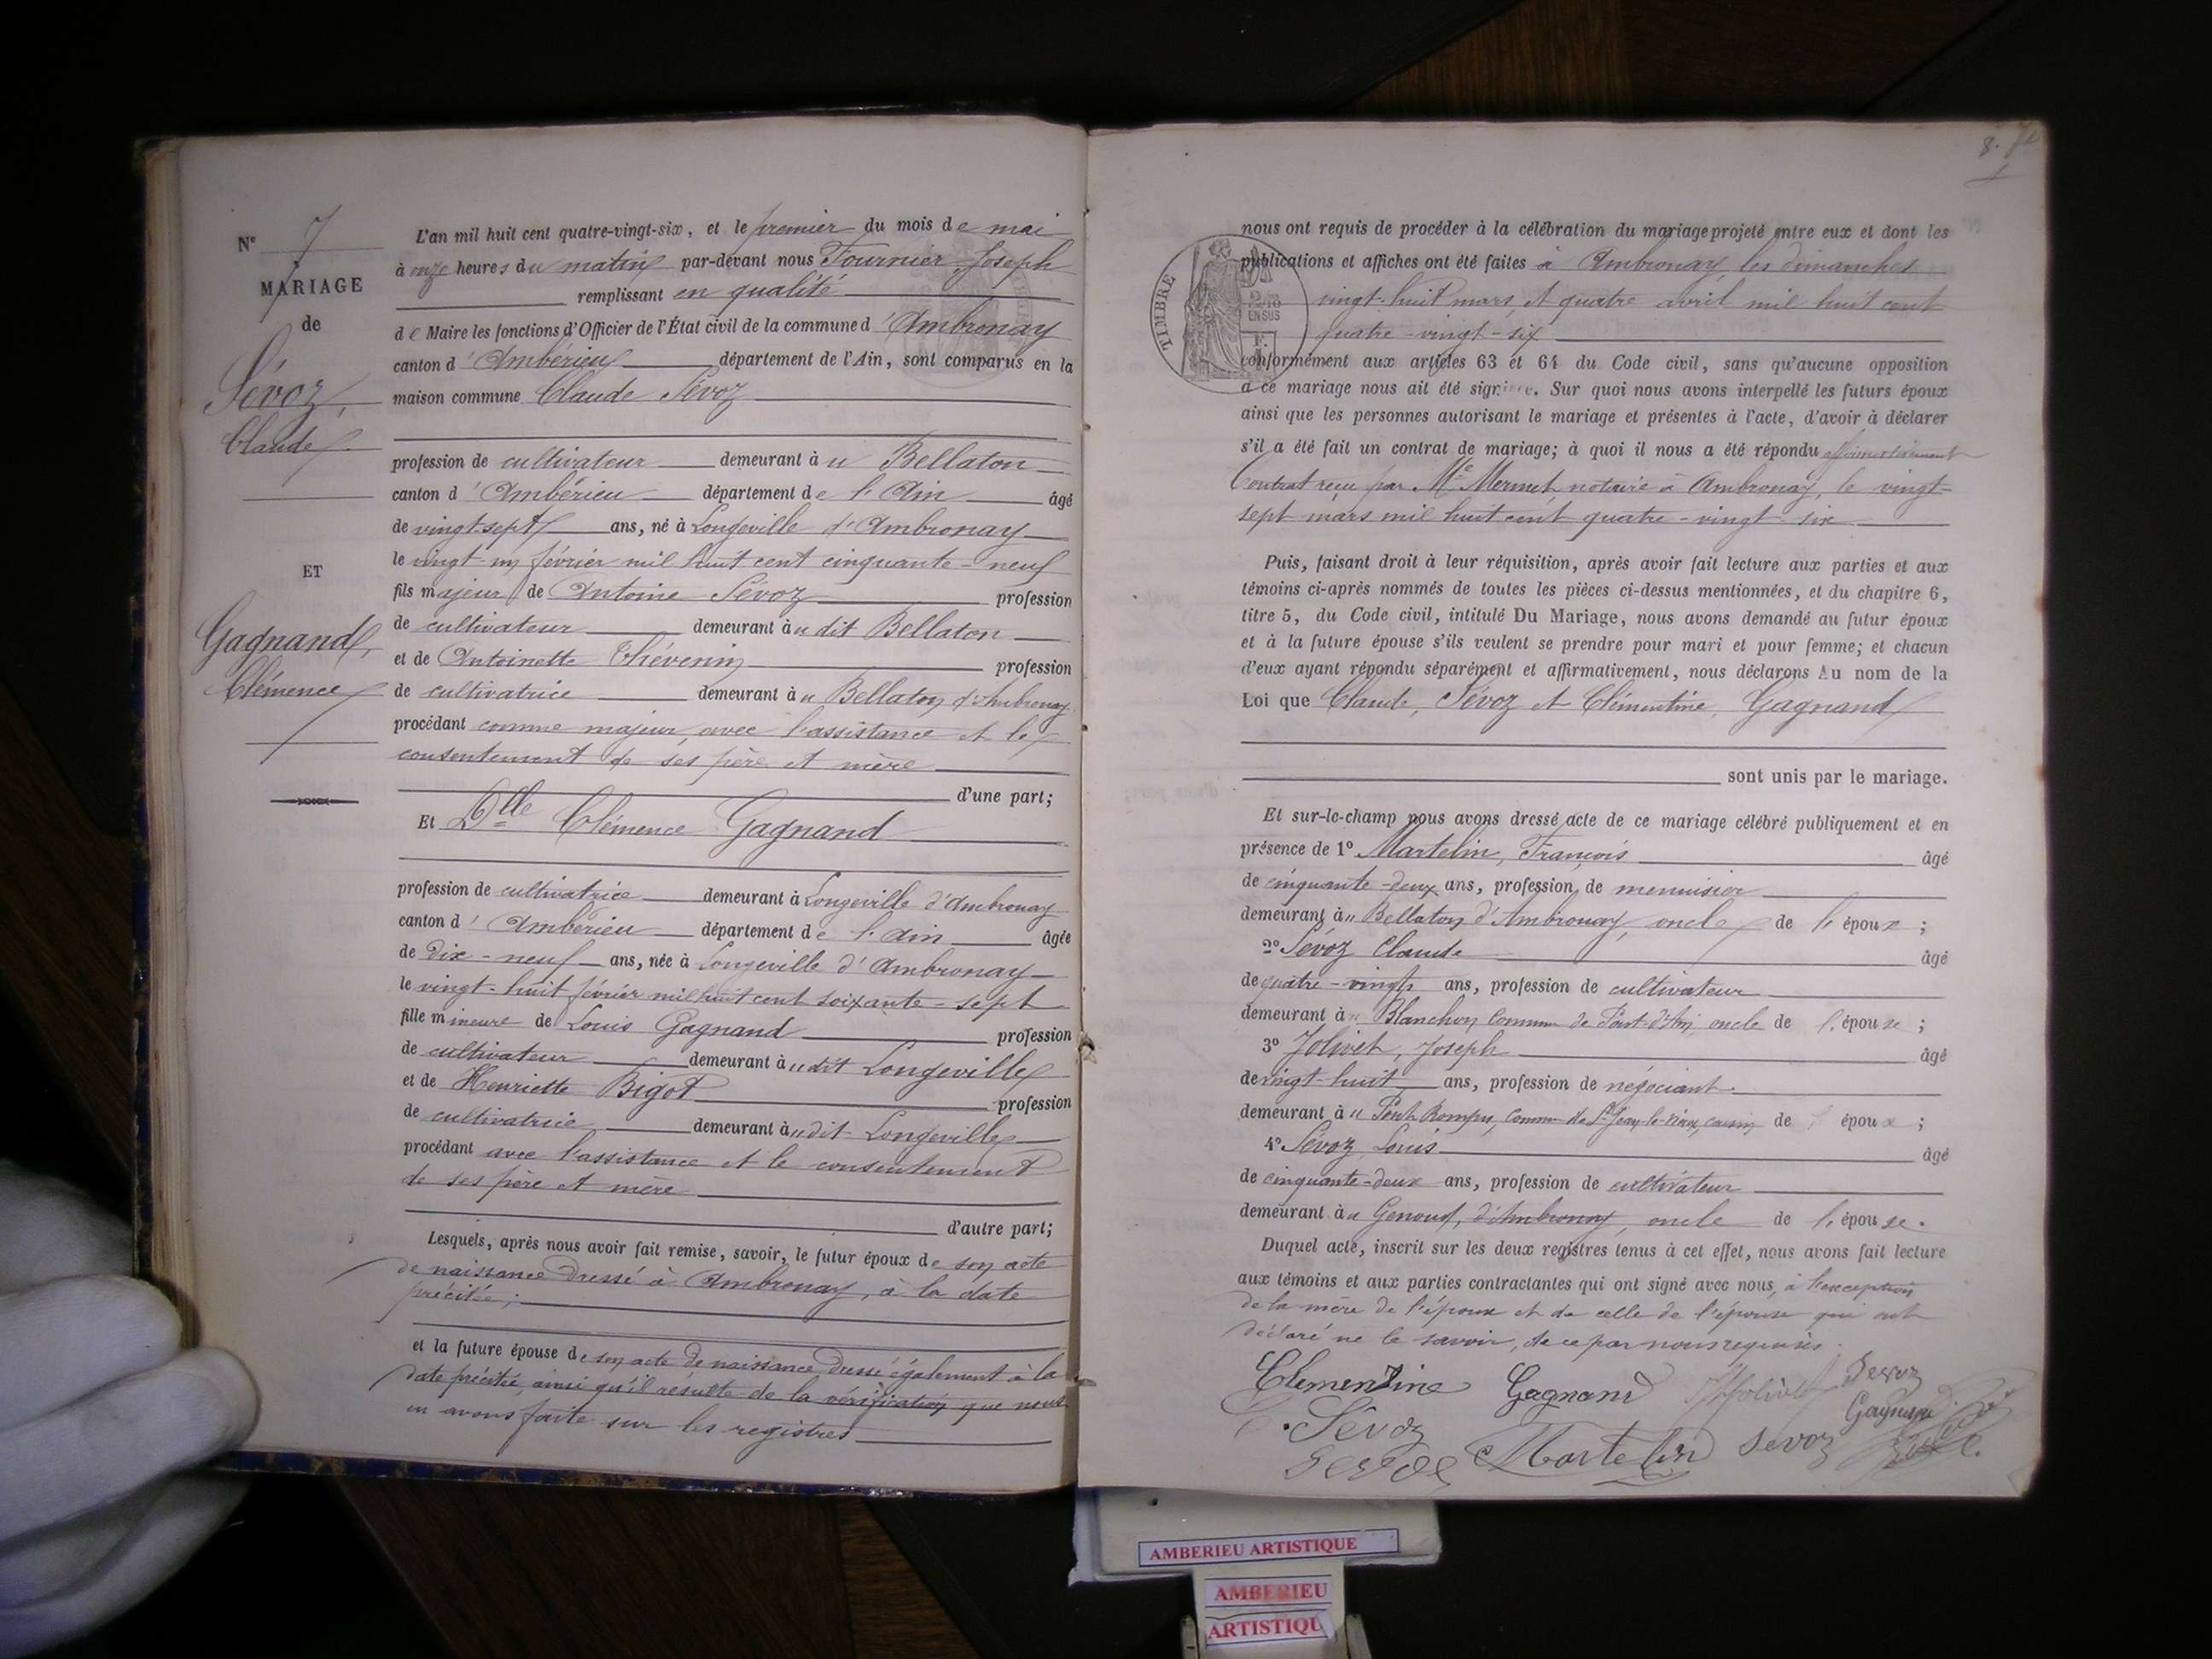 N° 7
MARIAGE
de
Sévoz,
Claude
ET
Gagnand,
Clémence
L'an mil huit cent quatre-vingt-six, et le premier du mois de mai
à onze heures du matin par-devant nous Fournier Joseph
remplissant en qualité
de Maire les fonctions d'Officier de l'État civil de la commune d'Ambronay
canton d'Ambérieu département de l'Ain, sont comparus en la
maison commune Claude Sévoz
profession de cultivateur demeurant à u Bellaton
canton d'Ambérieu département de l'Ain âgé
de vingt-sept ans, né à Longeville d'Ambronay
le vingt-un février mil huit cent cinquante-neuf
fils majeur de Antoine Sévoz profession
de cultivateur demeurant à u dit Bellaton
et de Antoinette Thévenin profession
de cultivatrice demeurant à u Bellaton d'Ambronay
procédant comme majeur, avec l'assistance et le
consentement de ses père et mère
d'une part;
Et Dlle Clémence Gagnand
profession de cultivatrice demeurant à Longeville d'Ambronay
canton d'Ambérieu département de l'Ain âgée
de dix-neuf ans, née à Longeville d'Ambronay
le vingt-huit février mil huit cent soixante-sept
fille mineure de Louis Gagnand profession
de cultivateur demeurant à u dit Longeville
et de Henriette Bigot profession
de cultivatrice demeurant à u dit Longeville
procédant avec l'assistance et le consentement
de ses père et mère
d'autre part;
Lesquels, après nous avoir fait remise, savoir, le futur époux de son acte
de naissance dressé à Ambronay, à la date
précitée;
et la future épouse de son acte de naissance dressé également à la
date précitée, ainsi qu'il résulte de la vérification que nous
en avons faite sur les registres
8.
nous ont requis de procéder à la célébration du mariage projeté entre eux et dont les
publications et affiches ont été faites à Ambronay, les dimanches
vingt-huit mars, et quatre avril mil huit cent
quatre-vingt-six
TIMBRE
2/10
EN SUS
conformément aux articles 63 et 64 du Code civil, sans qu'aucune opposition
à ce mariage nous ait été signifiée. Sur quoi nous avons interpellé les futurs époux
ainsi que les personnes autorisant le mariage et présentes à l'acte, d'avoir à déclarer
s'il a été fait un contrat de mariage; à quoi il nous a été répondu affirmativement
Contrat reçu par Me Mermet, notaire à Ambronay, le vingt-
sept mars mil huit cent quatre-vingt-six
Puis, faisant droit à leur réquisition, après avoir fait lecture aux parties et aux
témoins ci-après nommés de toutes les pièces ci-dessus mentionnées, et du chapitre 6,
titre 5, du Code civil, intitulé Du Mariage, nous avons demandé au futur époux
et à la future épouse s'ils veulent se prendre pour mari et pour femme; et chacun
d'eux ayant répondu séparément et affirmativement, nous déclarons Au nom de la
Loi que Claude, Sévoz et Clémentine, Gagnand
sont unis par le mariage.
Et sur-le-champ nous avons dressé acte de ce mariage célébré publiquement et en
présence de 1° Martelin, François âgé
de cinquante-deux ans, profession de menuisier
demeurant à u Bellaton d'Ambronay, oncle de l'époux;
2° Sévoz Claude âgé
de quatre-vingts ans, profession de cultivateur
demeurant à u Blanchon Commune de Pont-d'Ain, oncle de l'épouse;
3° Jolivet, Joseph âgé
de vingt-huit ans, profession de négociant
demeurant à u Pont Rompu, Commune de St Jean-le-Vieux, cousin de l'époux;
4° Sévoz, Louis âgé
de cinquante-deux ans, profession de cultivateur
demeurant à u Genoud, d'Ambronay, oncle de l'épouse.
Duquel acte, inscrit sur les deux registres tenus à cet effet, nous avons fait lecture
aux témoins et aux parties contractantes qui ont signé avec nous, à l'exception
de la mère de l'époux et de celle de l'épouse qui ont
déclaré ne le savoir, de ce par nous requises.
Clementine Gagnand Jolivet Sevoz
Gagnand
Sévoz
Martelin Sevoz
AMBERIEU ARTISTIQUE
AMBERIEU
ARTISTIQU